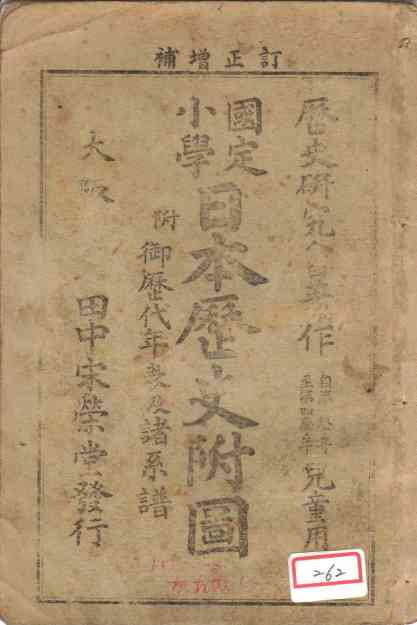 訂正增補
歷史研究會著作
兒童用
國定
小學
日本歷史附圖
附
御歷代年表及諸系譜
大阪
田中宋榮堂發行
262